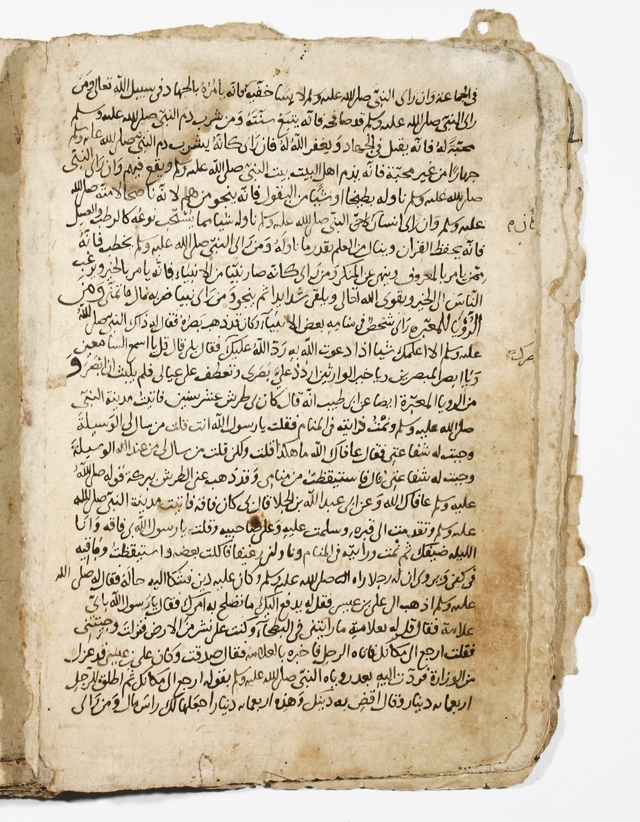 في الجماعة وان راى النبي صلى الله عليه وسلم لابسا خفيه فانه يامره بالجهاد في سبيل الله تعالى ومن
راى النبي صلى الله عليه وسلم قد صافحه فانه يتبع سنته ومن شرب دم النبي صلى الله عليه وسلم
محبة له فانه يقتل في الجهاد ويغفر الله له فان راى كانه يشرب دم النبي صلى الله عليه وسلم
جهارا من غير محبة فانه يذم اهل البيت بيت النبي صلى الله عليه وسلم ويقع فيهم وان راى النبي
صلى الله عليه وسلم ناوله بطيخا او شيا من البقول فانه ينجو من هم لانه ناصح لامته صلى الله
عليه وسلم وان راى انسان كان النبي صلى الله عليه وسلم ناوله شيا مما يستحب نوعه كالرطب والعسل
فانه يحفظ القران وينال من العلم بقدر ما ناوله ومن راى النبي صلى الله عليه وسلم يخطب فانه
يامر بالمعروف وينهى عن المنكر ومن راى كانه صار نبيا من الانبياء فانه يامر بالخير ويرغب
الناس الى الخير وبتقوى الله تعالى ويلقى شدايد ثم ينجو ومن راى نبيا ضربه نال ومن
الرويا المعبرة راى شخص في منامه بعض الانبياء وكان قد ذهب بصره فقال له ذاك النبي صلى الله
عليه وسلم الا اعلمك شيا اذا دعوت الله به رد الله عليك فقال بلى قال قل يا اسمع السامعين
ويا ابصر المبصرين ويا خير الوارثين اردد علي بصري وتعطف على عيالي فلم يلبث ان ابصر و
من الرويا المعبرة ايضا عن ابي طبيب انه قال كان بي طرش عشر سنين فاتيت مدينة النبي
صلى الله عليه وسلم ونمت فرايته في المنام فقلت يا رسول الله انت قلت من سال لي الوسيلة
وجبت له شفاعتي فقال عافاك الله ما هكذا قلت ولكن قلت من سال لي من عند الله الوسيلة
وجبت له شفاعتي قال فاستيقظت من منامي وقد ذهب عني الطرش ببركة قوله صلى الله
عليه وسلم عافاك الله وعن ابي عبد الله بن الجلا قال بي كان فاقة فاتيت مدينة النبي صلى الله
عليه وسلم وتقدمت الى قبره وسلمت عليه وعلى صاحبيه وقلت يا رسول الله بي فاقة وانا
الليله ضيفك ثم نمت ورايته في المنام وناولني رغيفا فاكلت بعضه واستيقظت وباقيه
في كفي ويروى ان رجلا راى النبي صلى الله عليه وسلم وكان عليه دين فشكا اليه حاله فقال له صلى الله
عليه وسلم اذهب الى علي بن عيسى فقل له يدفع اليك ما تصلح به امرك فقال يا رسول الله باي
علامة فقال قل له بعلامة ما رايتني في البطحاء وكنت على نشز من الارض فنزلت وجيتني
فقلت ارجع الى مكانك فاتاه الرجل فاخبره بالعلامة فقال صدقت وكان علي بن عيسى قد عزل
من الوزارة فردت اليه بعد روياه النبي صلى الله عليه وسلم بقوله ارجع الى مكانك ثم اطلق للرجل
اربعمايه دينار وقال اقض به دينك وهذه اربعمايه دينار اجعلها لك راس مال ومن راى